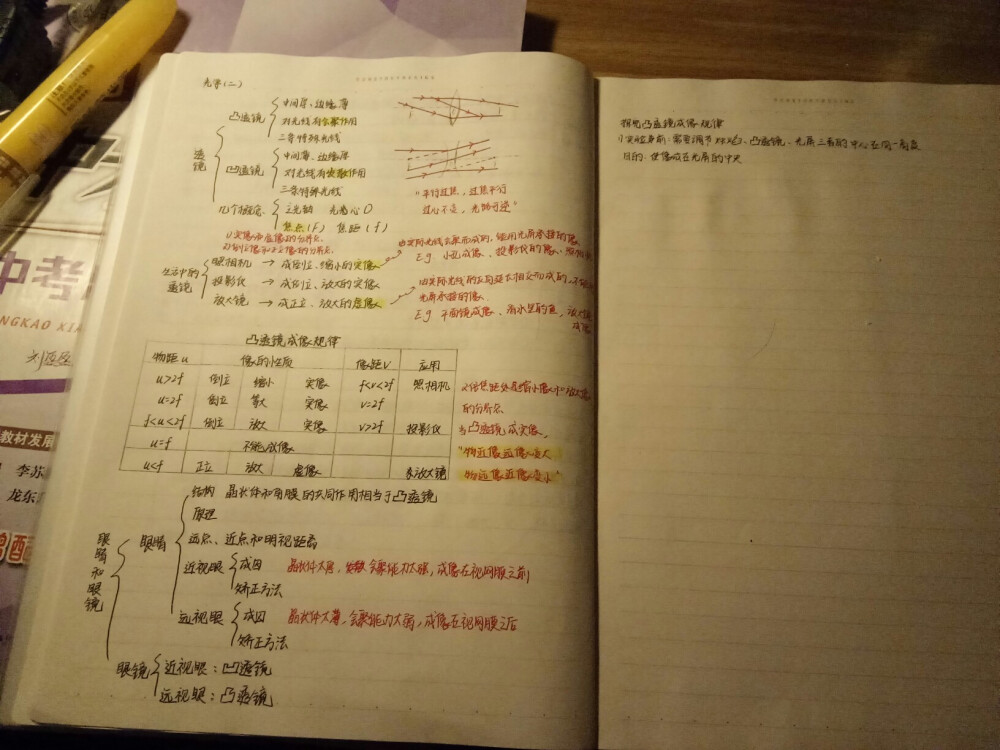 光学(二)
凸透镜
中间厚、边缘薄
对光线有会聚作用
三条特殊光线
透镜
凹透镜
中间薄、边缘厚
对光线有发散作用
三条特殊光线
"平行过焦,过焦平行
过心不变,光路可逆"
几个概念
主光轴 光心O
焦点(F) 焦距(f)
1)实像和虚像的分界点
2)倒立像和正立像的分界点
生活中的透镜
照相机 → 成倒立、缩小的实像
投影仪 → 成倒立、放大的实像
放大镜 → 成正立、放大的虚像
由实际光线会聚而成的,能用光屏承接的像
E.g. 小孔成像、投影仪的像、照相机
由实际光线的反向延长相交而成的,不能
光屏承接的像
E.g 平面镜成像、河水里的鱼,放大镜
成像
凸透镜成像规律
物距u 像的性质 像距v 应用
u>2f 倒立 缩小 实像 f<v<2f 照相机
u=2f 倒立 等大 实像 v=2f
f<u<2f 倒立 放大 实像 v>2f 投影仪
u=f 不能成像
u<f 正立 放大 虚像 放大镜
2倍焦距处是缩小像和放大像
的分界点
当凸透镜成实像,
"物近像远像变大
物远像近像变小"
眼睛和眼镜
眼睛
结构 晶状体和角膜的共同作用相当于凸透镜
原理
远点、近点和明视距离
近视眼
成因 晶状体太厚,会聚能力太强,成像在视网膜之前
矫正方法
远视眼
成因 晶状体太薄,会聚能力太弱,成像在视网膜之后
矫正方法
眼镜
近视眼:凹透镜
远视眼:凸透镜
探究凸透镜成像规律
1)实验前:需要调节蜡烛、凸透镜、光屏三者的中心在同一高度
目的:使像成在光屏的中央
中考
NGKAO XIA
教材发展
李苏
龙东